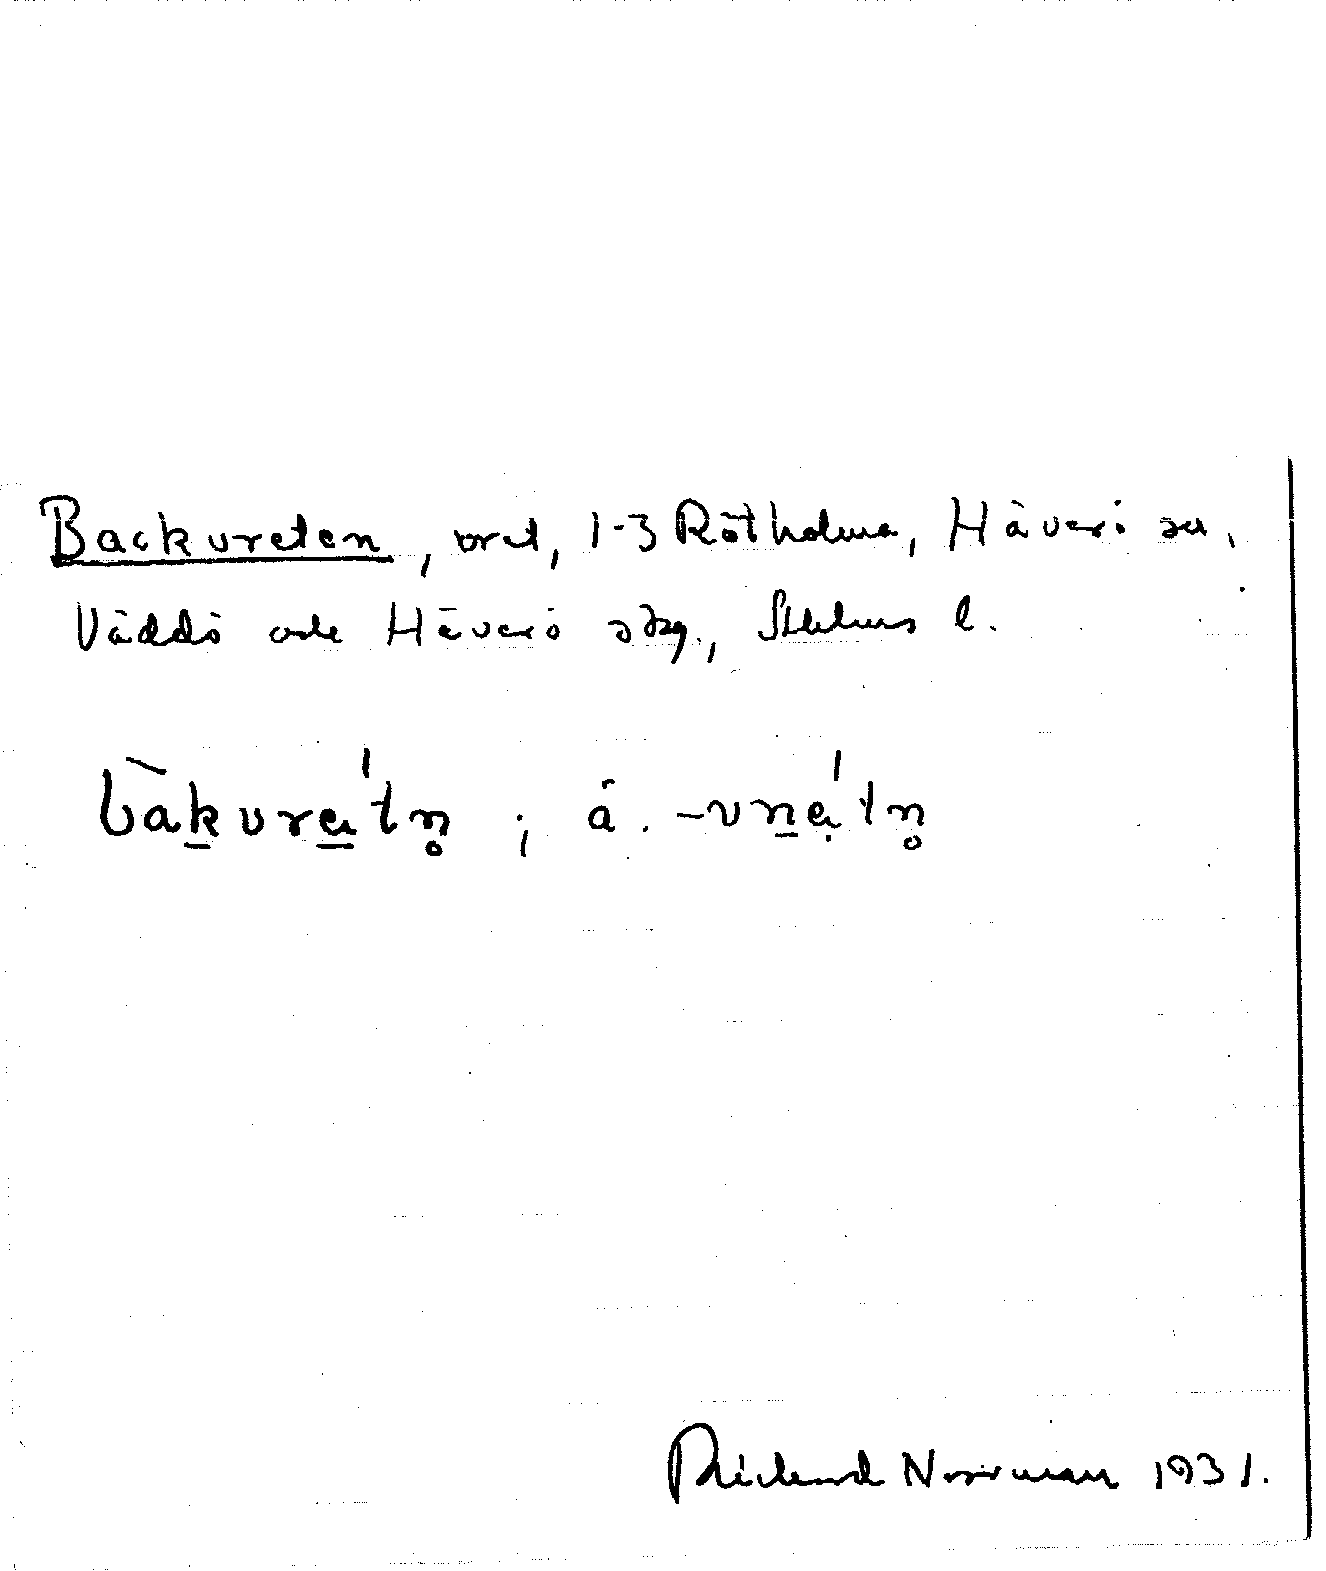 Backvreten, vret, 1-3 Rötholma, Häverö sn,
Väddö och Häverö skg., Sthlms l.
bàkvre̠ˈtn̥ ; ä. -vn̠ẹˈtn̥
Rickard Norrman 1931.